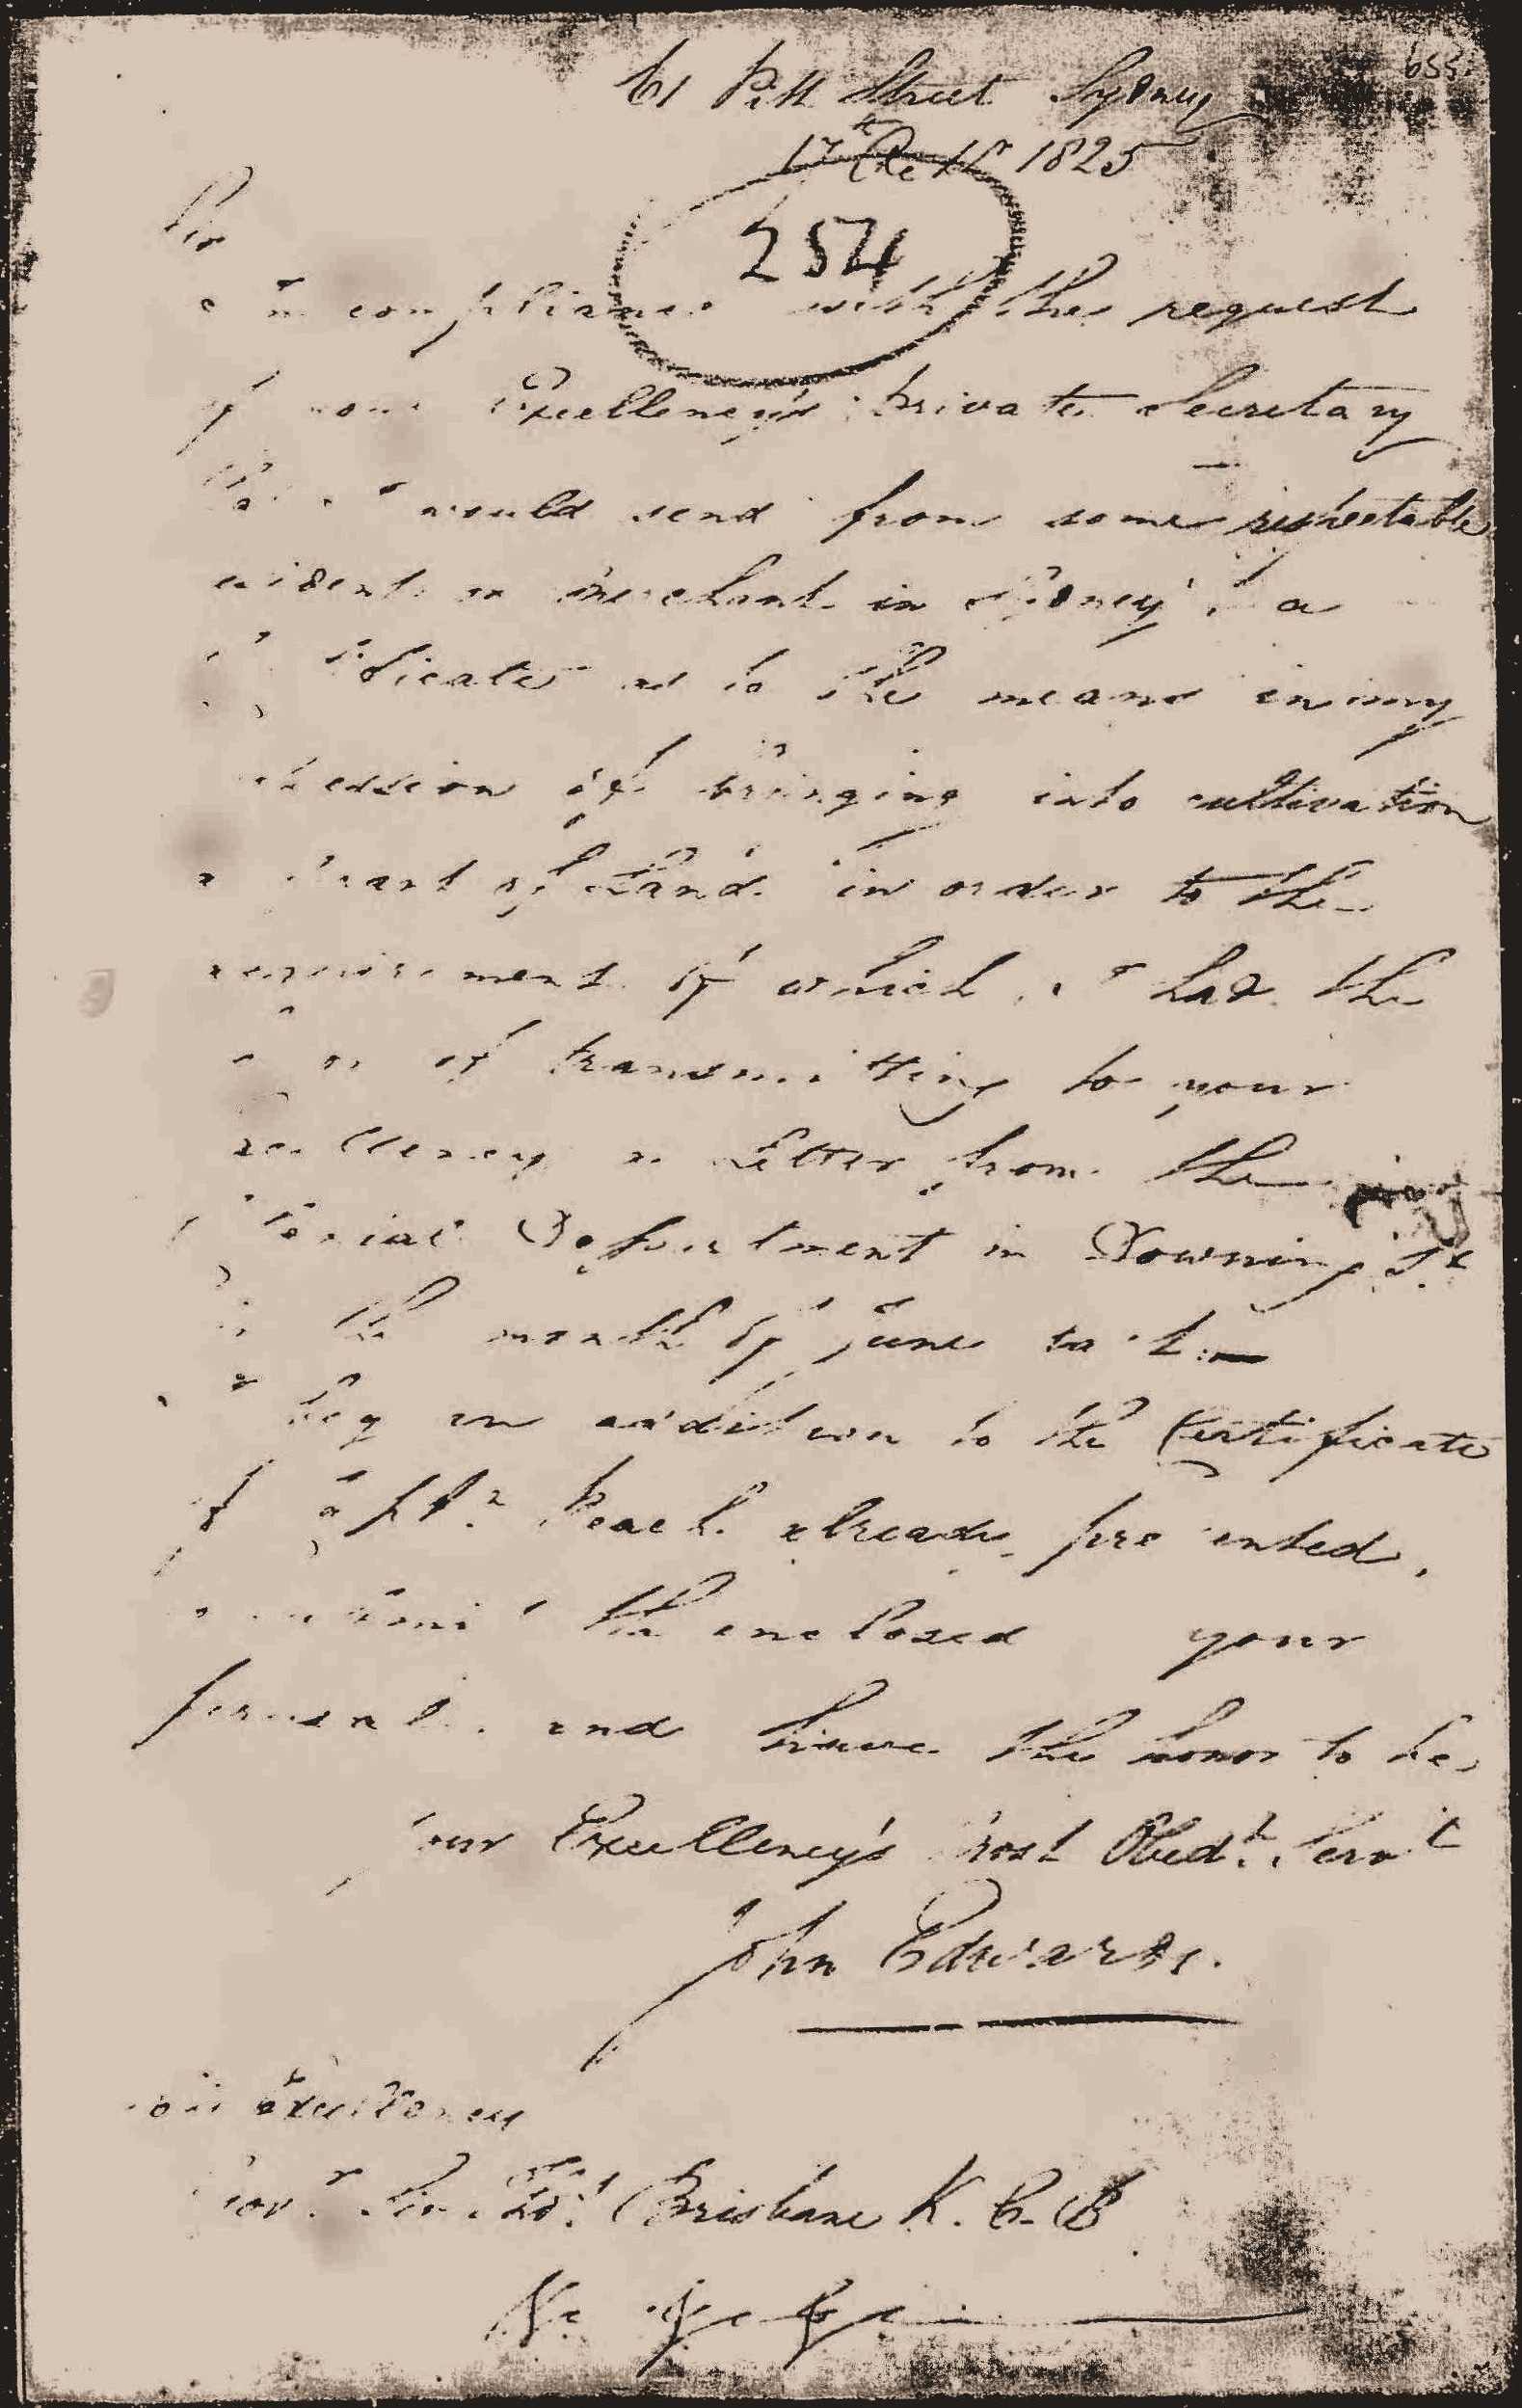 655
61 Pitt Street Sydney
17th Octr 1825
254
Sir
In compliance with the request
of your Excellency's Private Secretary
that I would send from some respectable
resident or merchant in Sydney a
Certificate as to the means in my
possession of bringing into cultivation
a Grant of Land in order to the
acquirement of which I had the
honor of transmitting to your
Excellency a Letter from the
Colonial Department in Downing St.
in the month of June last.
I beg in addition to the Certificate
of Captn Peach already presented,
to submit the enclosed your
perusal. and have the honor to be,
your Excellency's most Obedt. Servt
John Edwards.
His Excellency
Govr. Sir Thos. Brisbane K. C. B
&c &c &c